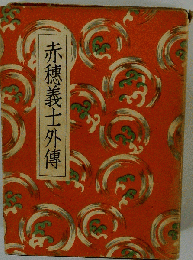 赤穗義士外傳